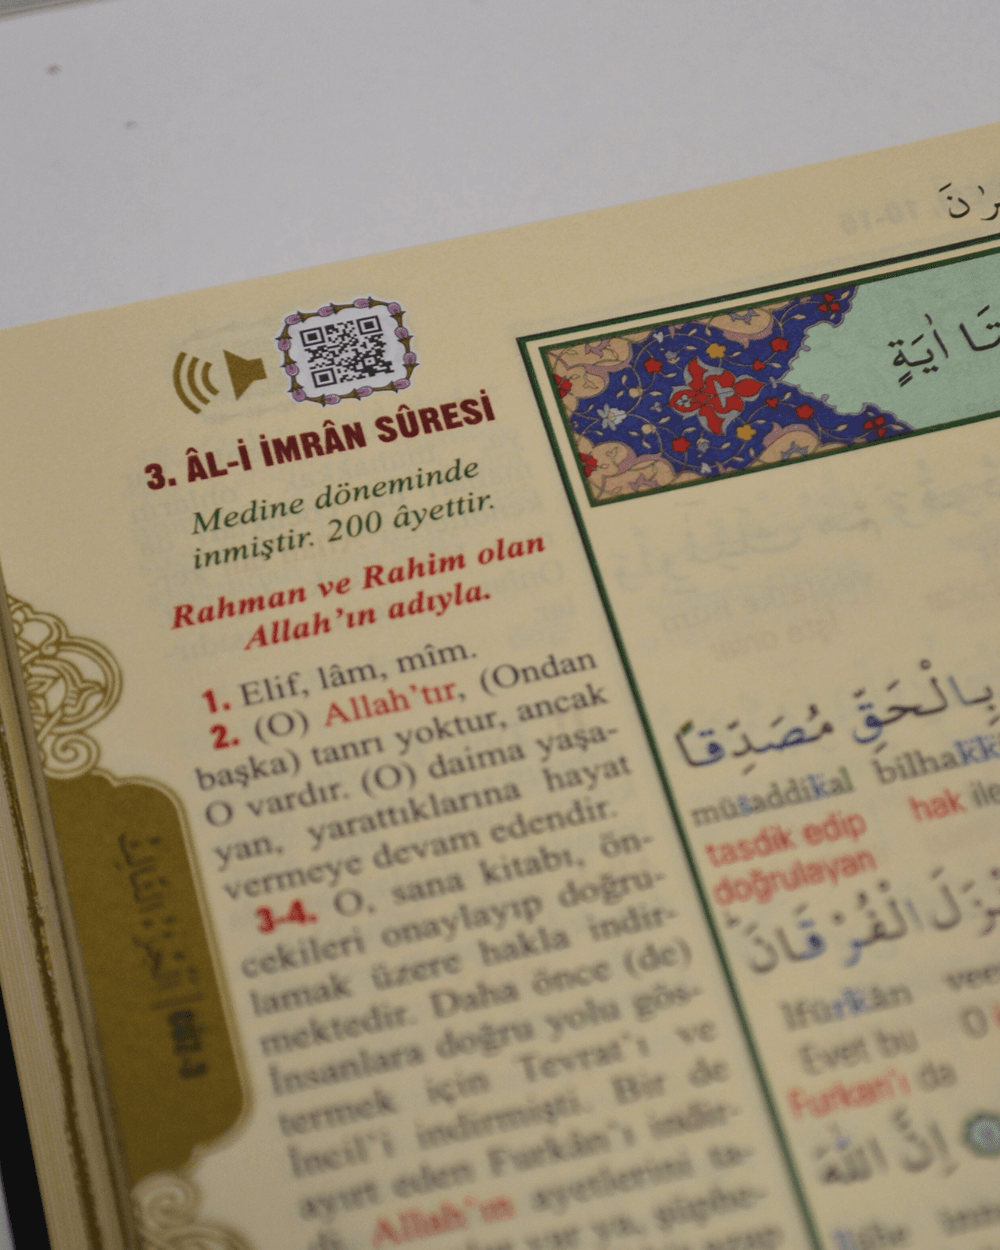 3. ÂL-İ İMRÂN SÛRESİ
Medine döneminde
inmiştir. 200 âyettir.
Rahman ve Rahim olan
Allah'ın adıyla.
1. Elif, lâm, mîm.
2. (O) Allah'tır, (Ondan
başka) tanrı yoktur, ancak
O vardır. (O) daima yaşa-
yan, yarattıklarına hayat
vermeye devam edendir.
3-4. O, sana kitabı, ön-
cekileri onaylayıp doğru-
lamak üzere hakla indir-
mektedir. Daha önce (de)
İnsanlara doğru yolu gös-
termek için Tevrat'ı ve
İncil'i indirmişti. Bir de
ayırt eden Furkân'ı indir-
di. Allah'ın ayetlerini ta-
var ya, şüphe-
اٰيَةٍ
بِالْحَقِّ مُصَدِّقًا
müsaddikal bilhakkı
tasdik edip hak ile
doğrulayan
الْفُرْقَانَ
lfürkân
Evet bu O
Furkan'ı da
اِنَّ اللّٰهَ